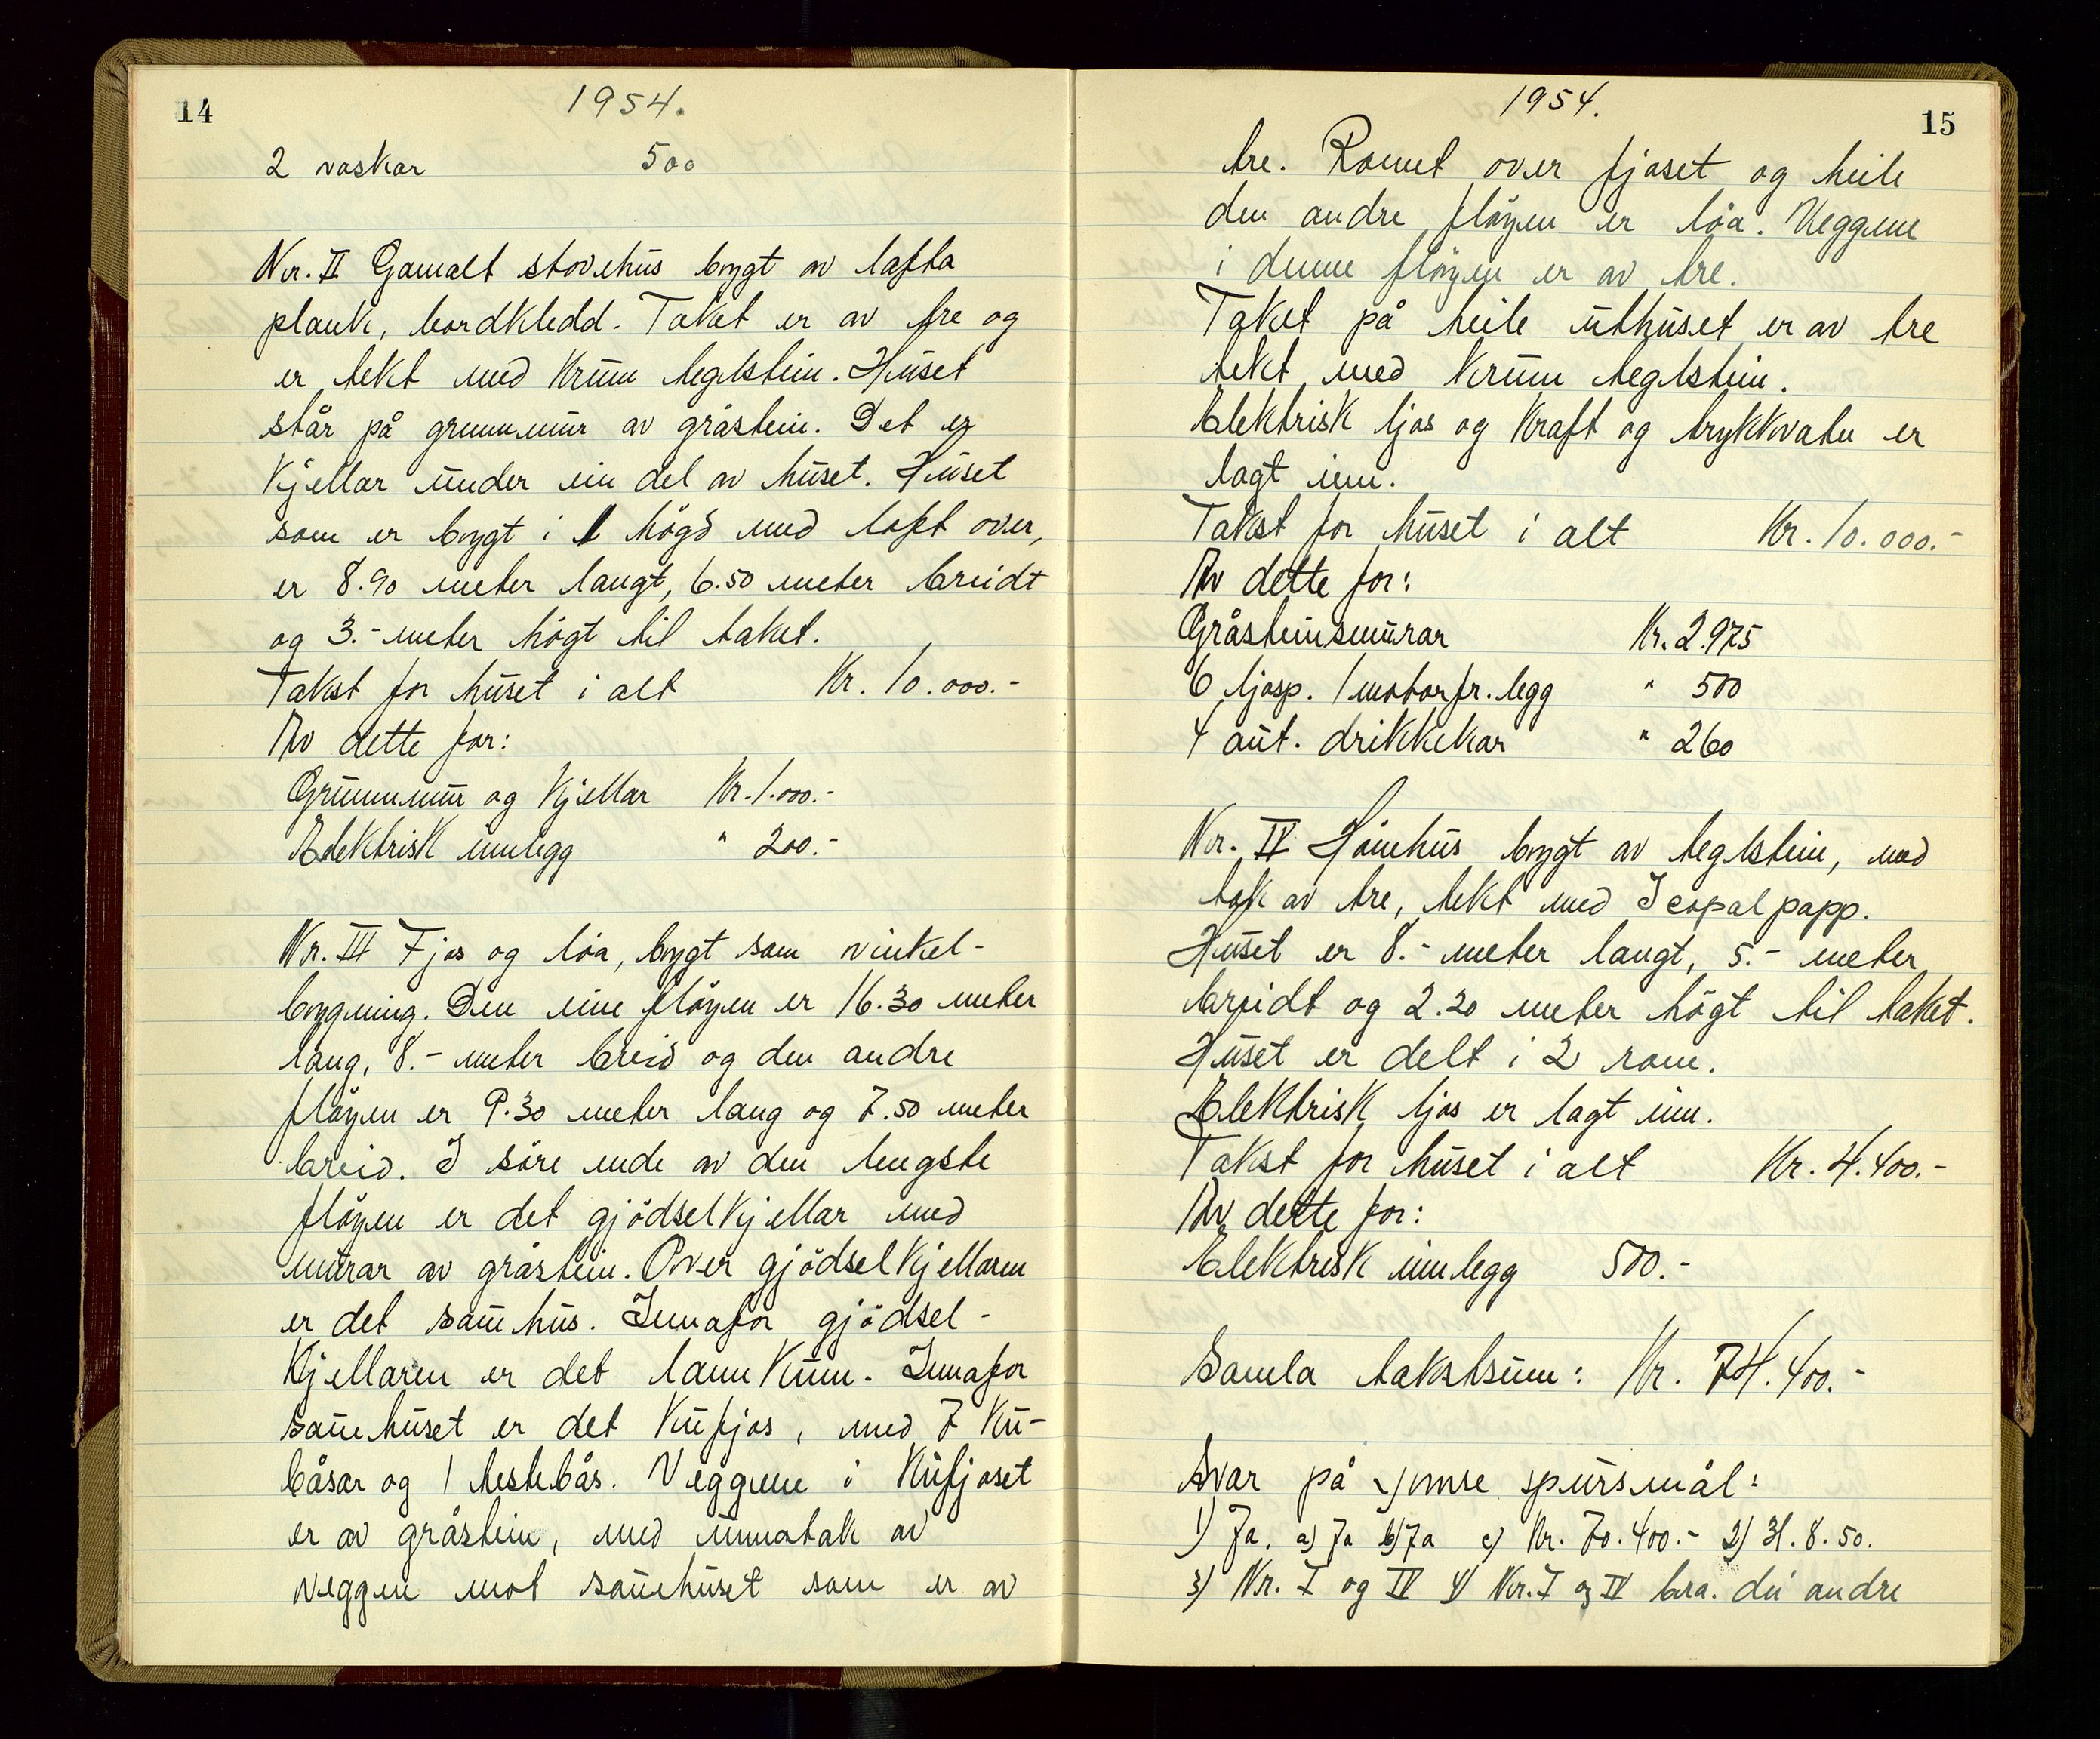 14
1954.
2 vaskar 500
Nr. II Gamalt stovehus bygt av lafta
plank, bordkledd. Taket er av tre og
er tekt med krum teglstein. Huset
står på grunnmur av gråstein. Det er
kjellar under ein del av huset. Huset
som er bygt i 1 högd med loft over,
er 8.90 meter langt, 6.50 meter breidt
og 3.- meter högt til taket.
Takst for huset i alt Kr. 10.000.-
Av dette for:
Grunnmur og kjellar Kr. 1.000.-
Elektrisk innlegg " 200.-
Nr. III Fjos og löa, bygt som vinkel-
bygning. Den eine flöyen er 16.30 meter
lang, 8.- meter breid og den andre
flöyen er 9.30 meter lang og 7.50 meter
breid. I söre ende av den lengste
flöyen er det gjödselkjellar med
murar av gråstein. Over gjödselkjellaren
er det sauehus. Innafor gjödsel-
kjellaren er det landkum. Innafor
sauehuset er det kufjos, med 7 ku-
båsar og 1 hestebås. Veggene i kufjoset
er av gråstein, med unnatak av
veggen mot sauehuset som er av
1954.
15
tre. Romet over fjoset og heile
den andre flöyen er löa. Veggene
i denne flöyen er av tre.
Taket på heile uthuset er av tre
tekt med krum teglstein.
Elektrisk ljos og kraft og trykkvatn er
lagt inn.
Takst for huset i alt Kr. 10.000.-
Av dette for:
Gråsteinsmurar Kr. 2.975
6 ljosp. 1 motorfr. legg " 500
4 aut. drikkekar " 260
Nr. IV Hönehus bygt av teglstein, med
tak av tre, tekt med Icopal papp.
Huset er 8.- meter langt, 5.- meter
breidt og 2.20 meter högt til taket.
Huset er delt i 2 rom.
Elektrisk ljos er lagt inn.
Takst for huset i alt Kr. 4.400.-
Av dette for:
Elektrisk innlegg 500.-
Samla takstsum: Kr. 74.400.-
Svar på ymse spursmål:
1) Ja. a) Ja b) Ja c) Kr. 70.400.- 2) 31.8.50.
3) Nr. I og IV 4) Nr. I og IV bra. dei andre